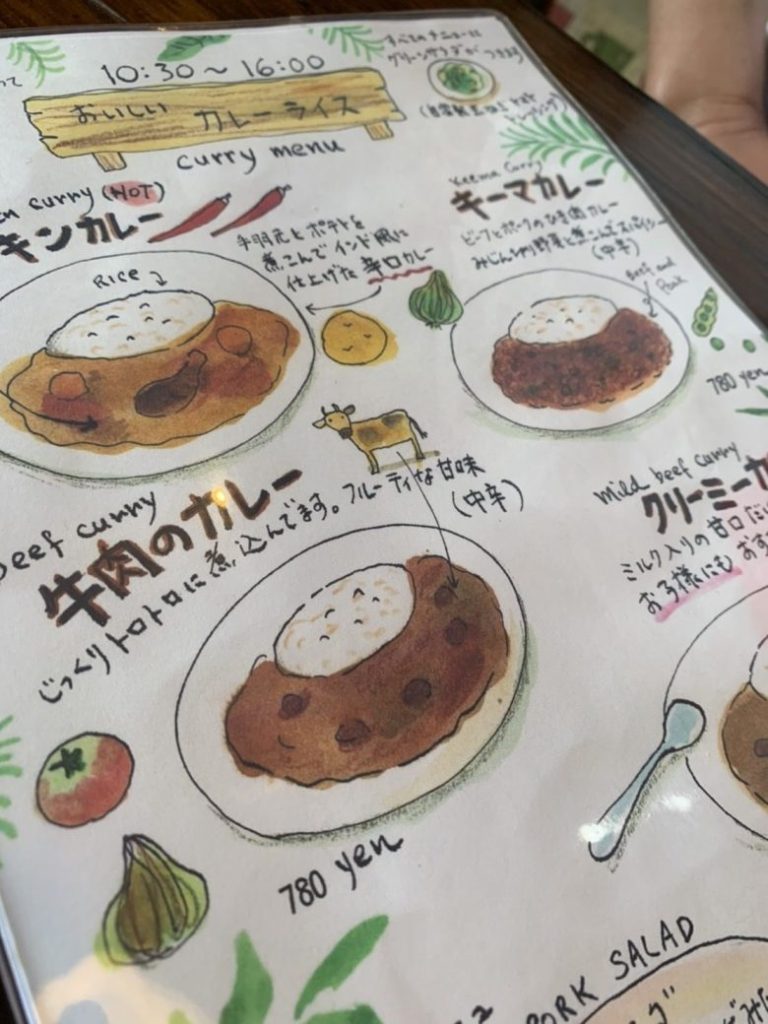 すべてのメニューに
グリーンサラダがつきます
10:30～16:00
おいしい カレーライス
curry menu
curry (HOT)
キンカレー
手羽元とポテトを
煮こんでインド風に
仕上げた辛口カレー
Rice
Keema curry
キーマカレー
ビーフとポークのひき肉カレー
みじん切り野菜と煮こんで
(中辛)
Beef and
Pork
780 yen
beef curry
牛肉のカレー
じっくりトロトロに煮込んでます。フルーティな甘味
(中辛)
780 yen
Mild beef curry
クリーミーカ
ミルク入りの甘口
お子様にも おす
PORK SALAD